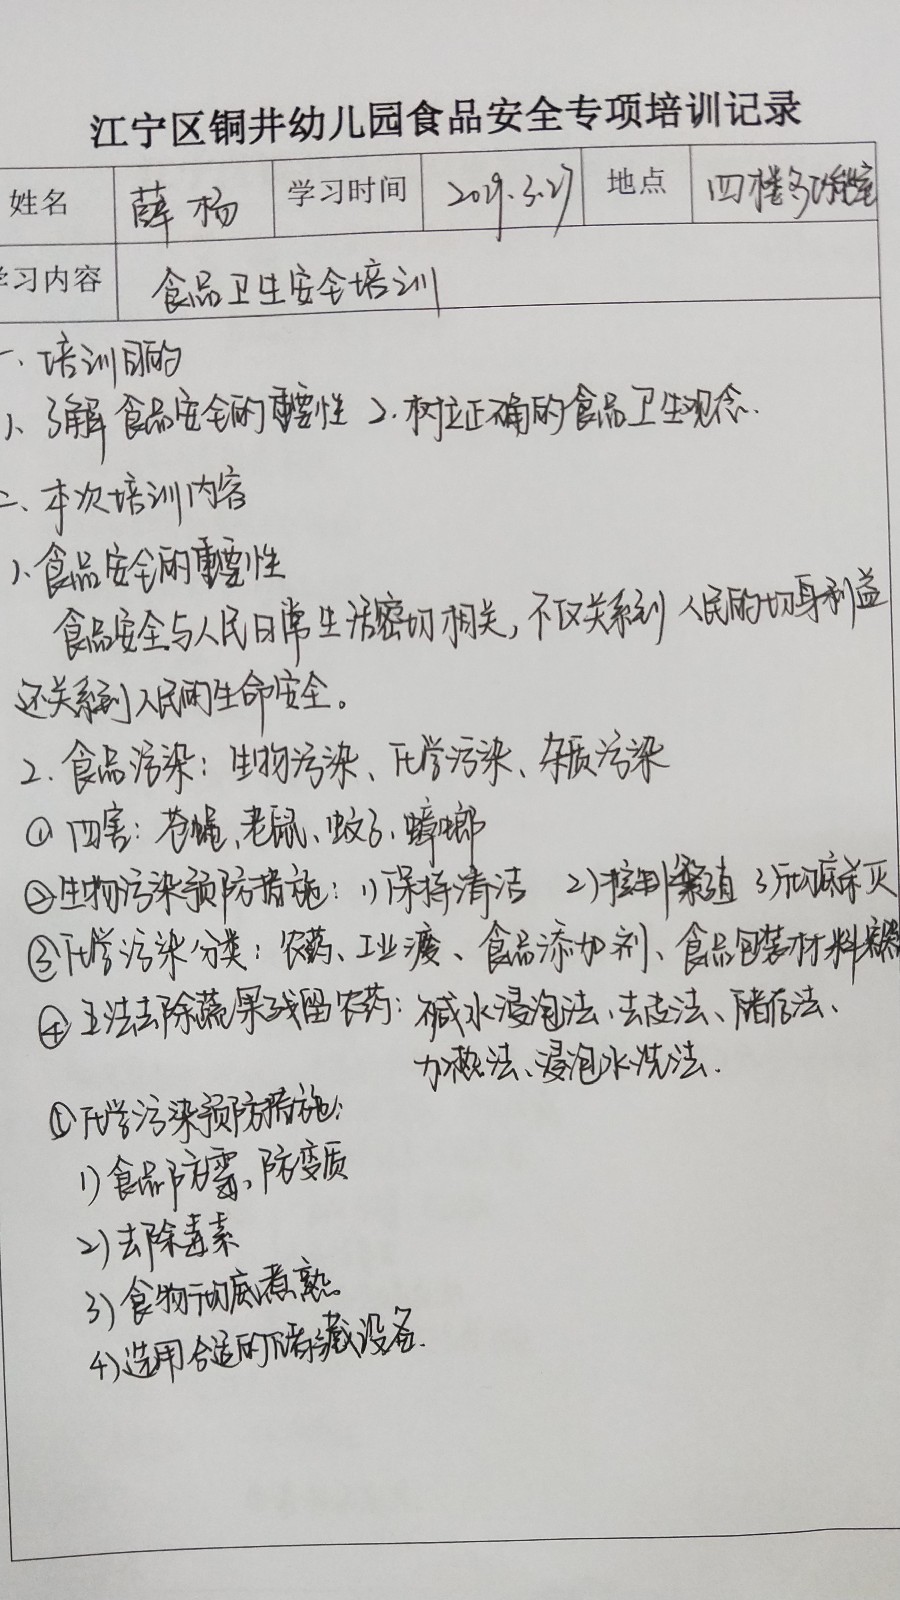 江宁区铜井幼儿园食品安全专项培训记录
姓名 薛杨 学习时间 2019.3.27 地点 四楼多功能室
学习内容 食品卫生安全培训
一、培训目的
1、了解食品安全的重要性 2.树立正确的食品卫生观念.
二、本次培训内容
1、食品安全的重要性
食品安全与人民日常生活密切相关，不仅关系到人民的切身利益
还关系到人民的生命安全。
2.食品污染：生物污染、化学污染、杂质污染
①四害：苍蝇、老鼠、蚊子、蟑螂
②生物污染预防措施：1)保持清洁 2)控制繁殖 3)彻底杀灭
③化学污染分类：农药、工业废、食品添加剂、食品包装材料
④五法去除蔬果残留农药：碱水浸泡法、去皮法、储存法、
加热法、浸泡水洗法.
①化学污染预防措施：
1)食品防霉、防变质
2)去除毒素
3)食物彻底煮熟.
4)选用合适的储藏设备.